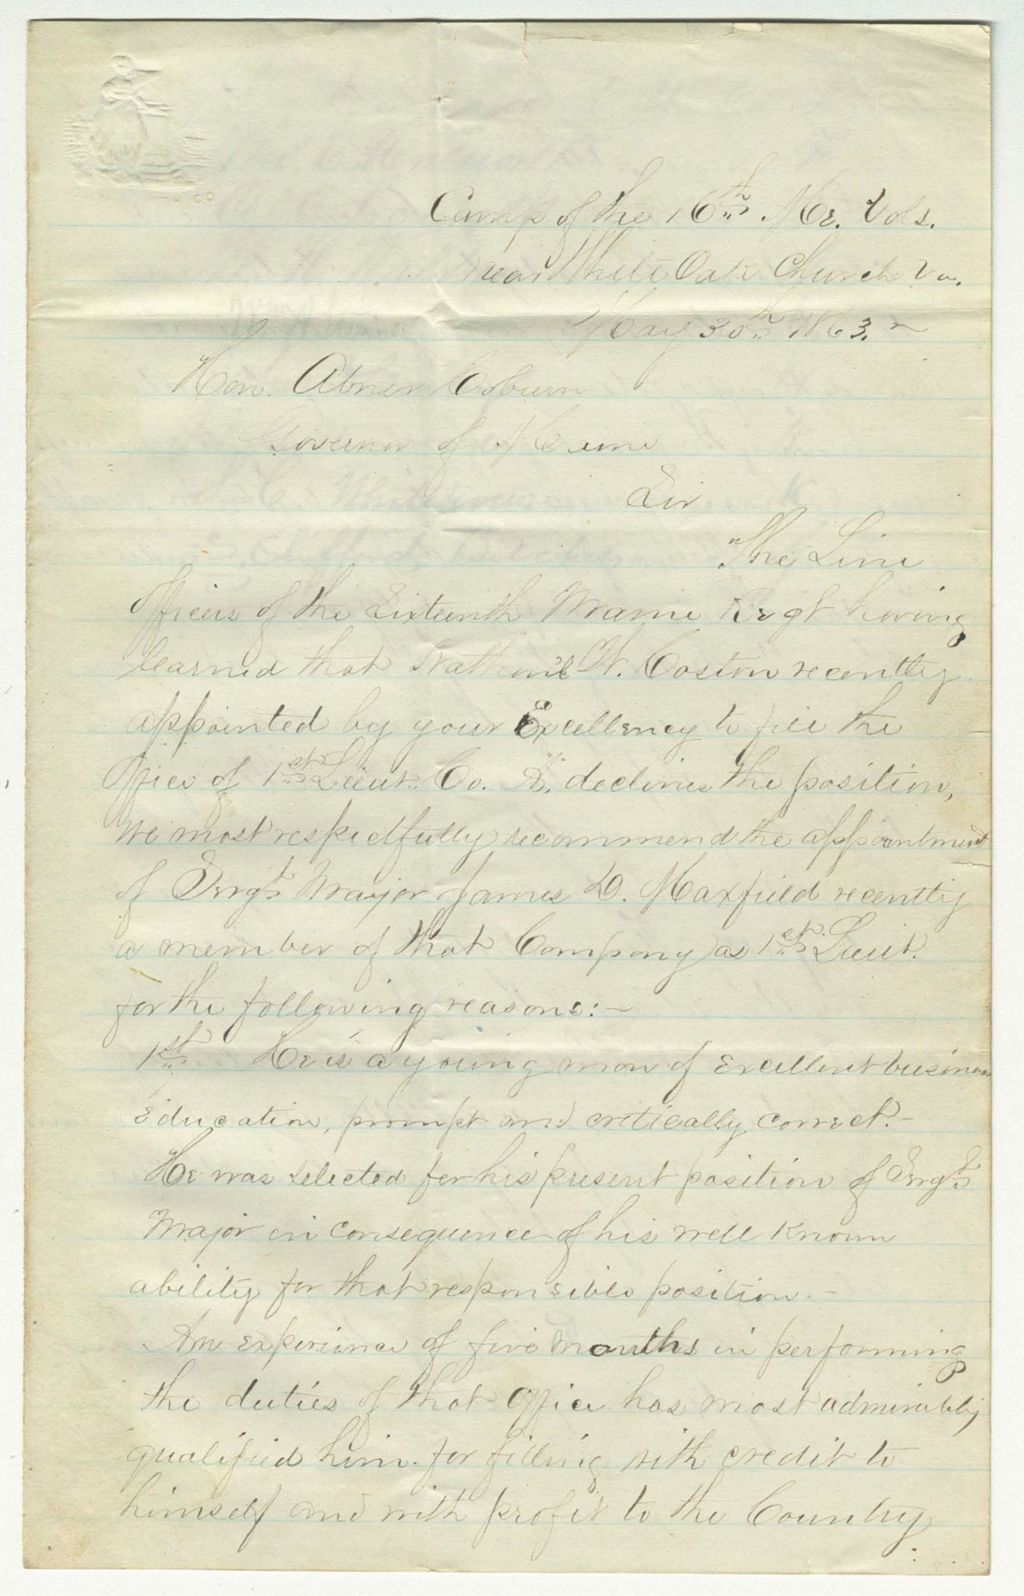 Camp of the 16th Me. Vols.
near White Oak Church Va.
May 30th 1863.
Hon. Abner Coburn
Governor of Maine
Sir
The Line
Officers of the Sixteenth Maine Regt having
learned that Nathan'l W. Coston recently
appointed by your Excellency to fill the
Office of 1st Lieut. Co. "A". declines the position,
We most respectfully recommend the appointment
of Sergt Major James D. Maxfield recently
a member of that Company as 1st Lieut.
for the following reasons:—
1st. He is a young man of Excellent business
Education, prompt and critically correct.—
He was selected for his present position of Sergt
Major in consequence of his well known
ability for that responsible position.—
An experience of five months in performing
the duties of that Office has most admirably
qualified him for filling with credit to
himself and with profit to the Country